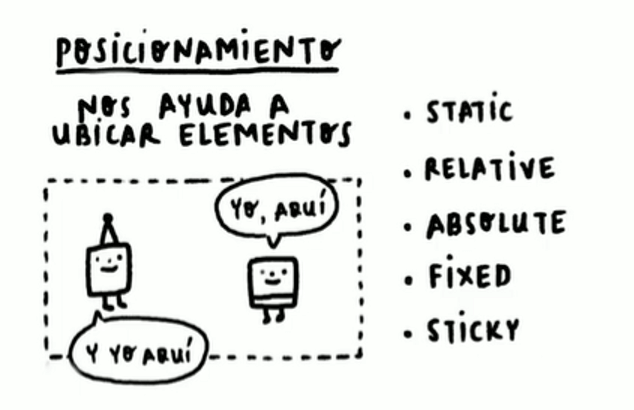 POSICIONAMIENTO
NOS AYUDA A
UBICAR ELEMENTOS
YO, AQUÍ
Y YO AQUÍ
• STATIC
• RELATIVE
• ABSOLUTE
• FIXED
• STICKY